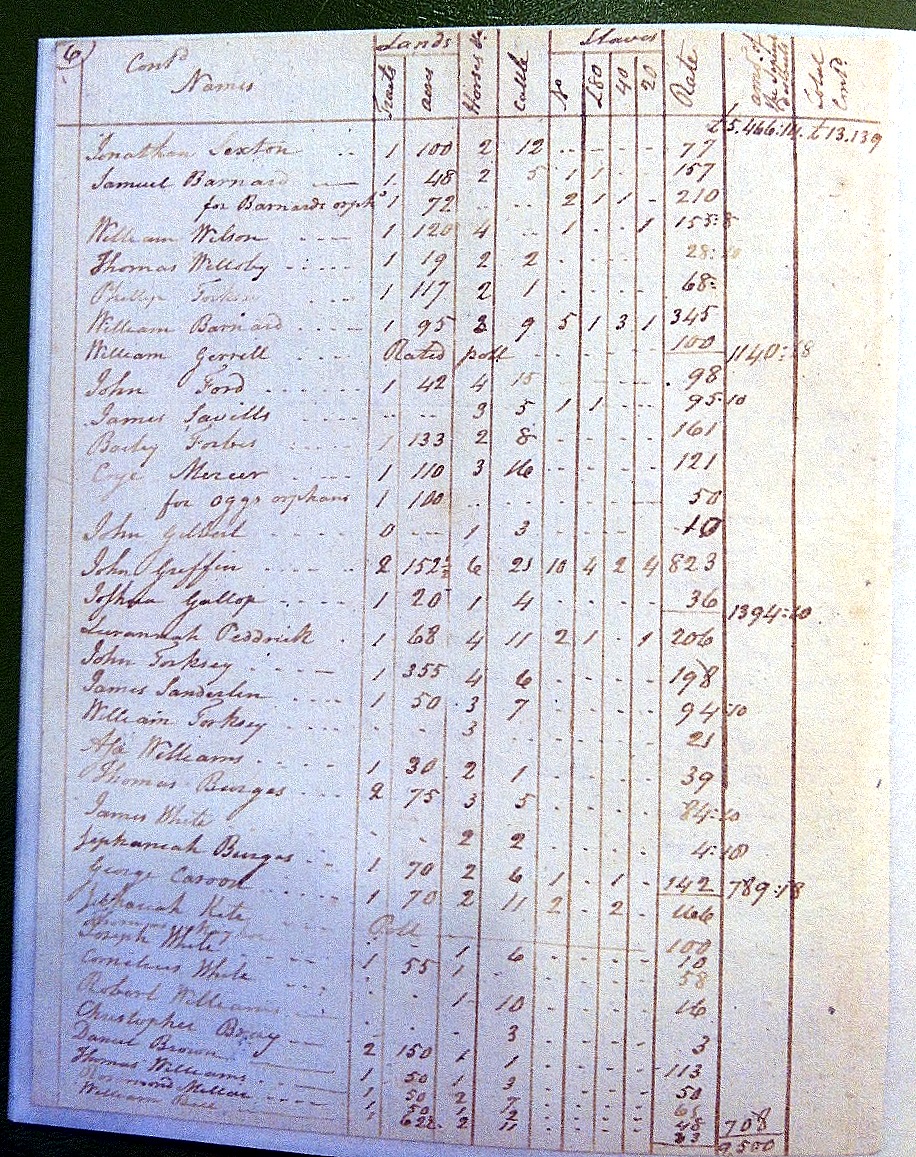 6) Cont'd Names Lands Tracts acres Horses &c. Cattle Slaves No £80 40 20 Rate am't of Total Cont'd
£5.466:14. £13.139
Jonathan Sexton 1 100 2 12 .. - - - 77
Samuel Barnard 1 48 2 5 1 1 - - 157
for Barnards orphs 1 72 .. .. 2 1 1 - 210
William Wilson 1 120 4 .. 1 - - 1 153:8
Thomas Willoby 1 19 2 2 - - - - 28:10
Phillip Torksey 1 117 2 1 - - - - 68:
William Barnard 1 95 3 9 5 1 3 1 345
William Gerrell Rated poll - - - - 100 1140:18
John Ford 1 42 4 15 - - - - 98
James Savills .. .. 3 5 1 1 - - 95:10
Baley Forbes 1 133 2 8 - - - - 161
Crye Mercer 1 110 3 16 - - - - 121
for Oggs orphans 1 100 .. .. - - - - 50
John Gilbert 0 -- 1 3 - - - - 10
John Greffin 2 152½ 6 21 10 4 2 4 823
Joshua Gallop 1 20 1 4 - - - - 36 1394:10
Survannah Peddrick 1 68 4 11 2 1 . 1 206
John Torksey 1 355 4 6 - - - - 198
James Sanderlin 1 50 3 7 - - - - 94:10
William Torksey - - 3 - - - - 21
Asa Williams 1 30 2 1 - - - - 39
Thomas Burges 2 75 3 5 - - - - 84:10
James White - - 2 2 - - - - 4:10
Zephaniah Burges 1 70 2 6 1 - 1 - 142 789:18
George Caroon 1 70 2 11 2 - 2 - 166
Zephaniah Kite
Poll 100
Joseph White - - 1 6 - - - - 10
Cornelius White 1 55 1 - - - - 58
Robert Williams - - 1 10 - - - - 16
Christopher Bray - - - 3 - - - - 3
Daniel Brown 2 150 1 1 - - - - 113
Thomas Williams 1 50 1 3 - - - - 50
Millar 1 50 2 7 - - - -
William Bell 1 50 1 12 - - - - 48 708
2 11 - - - - 9500